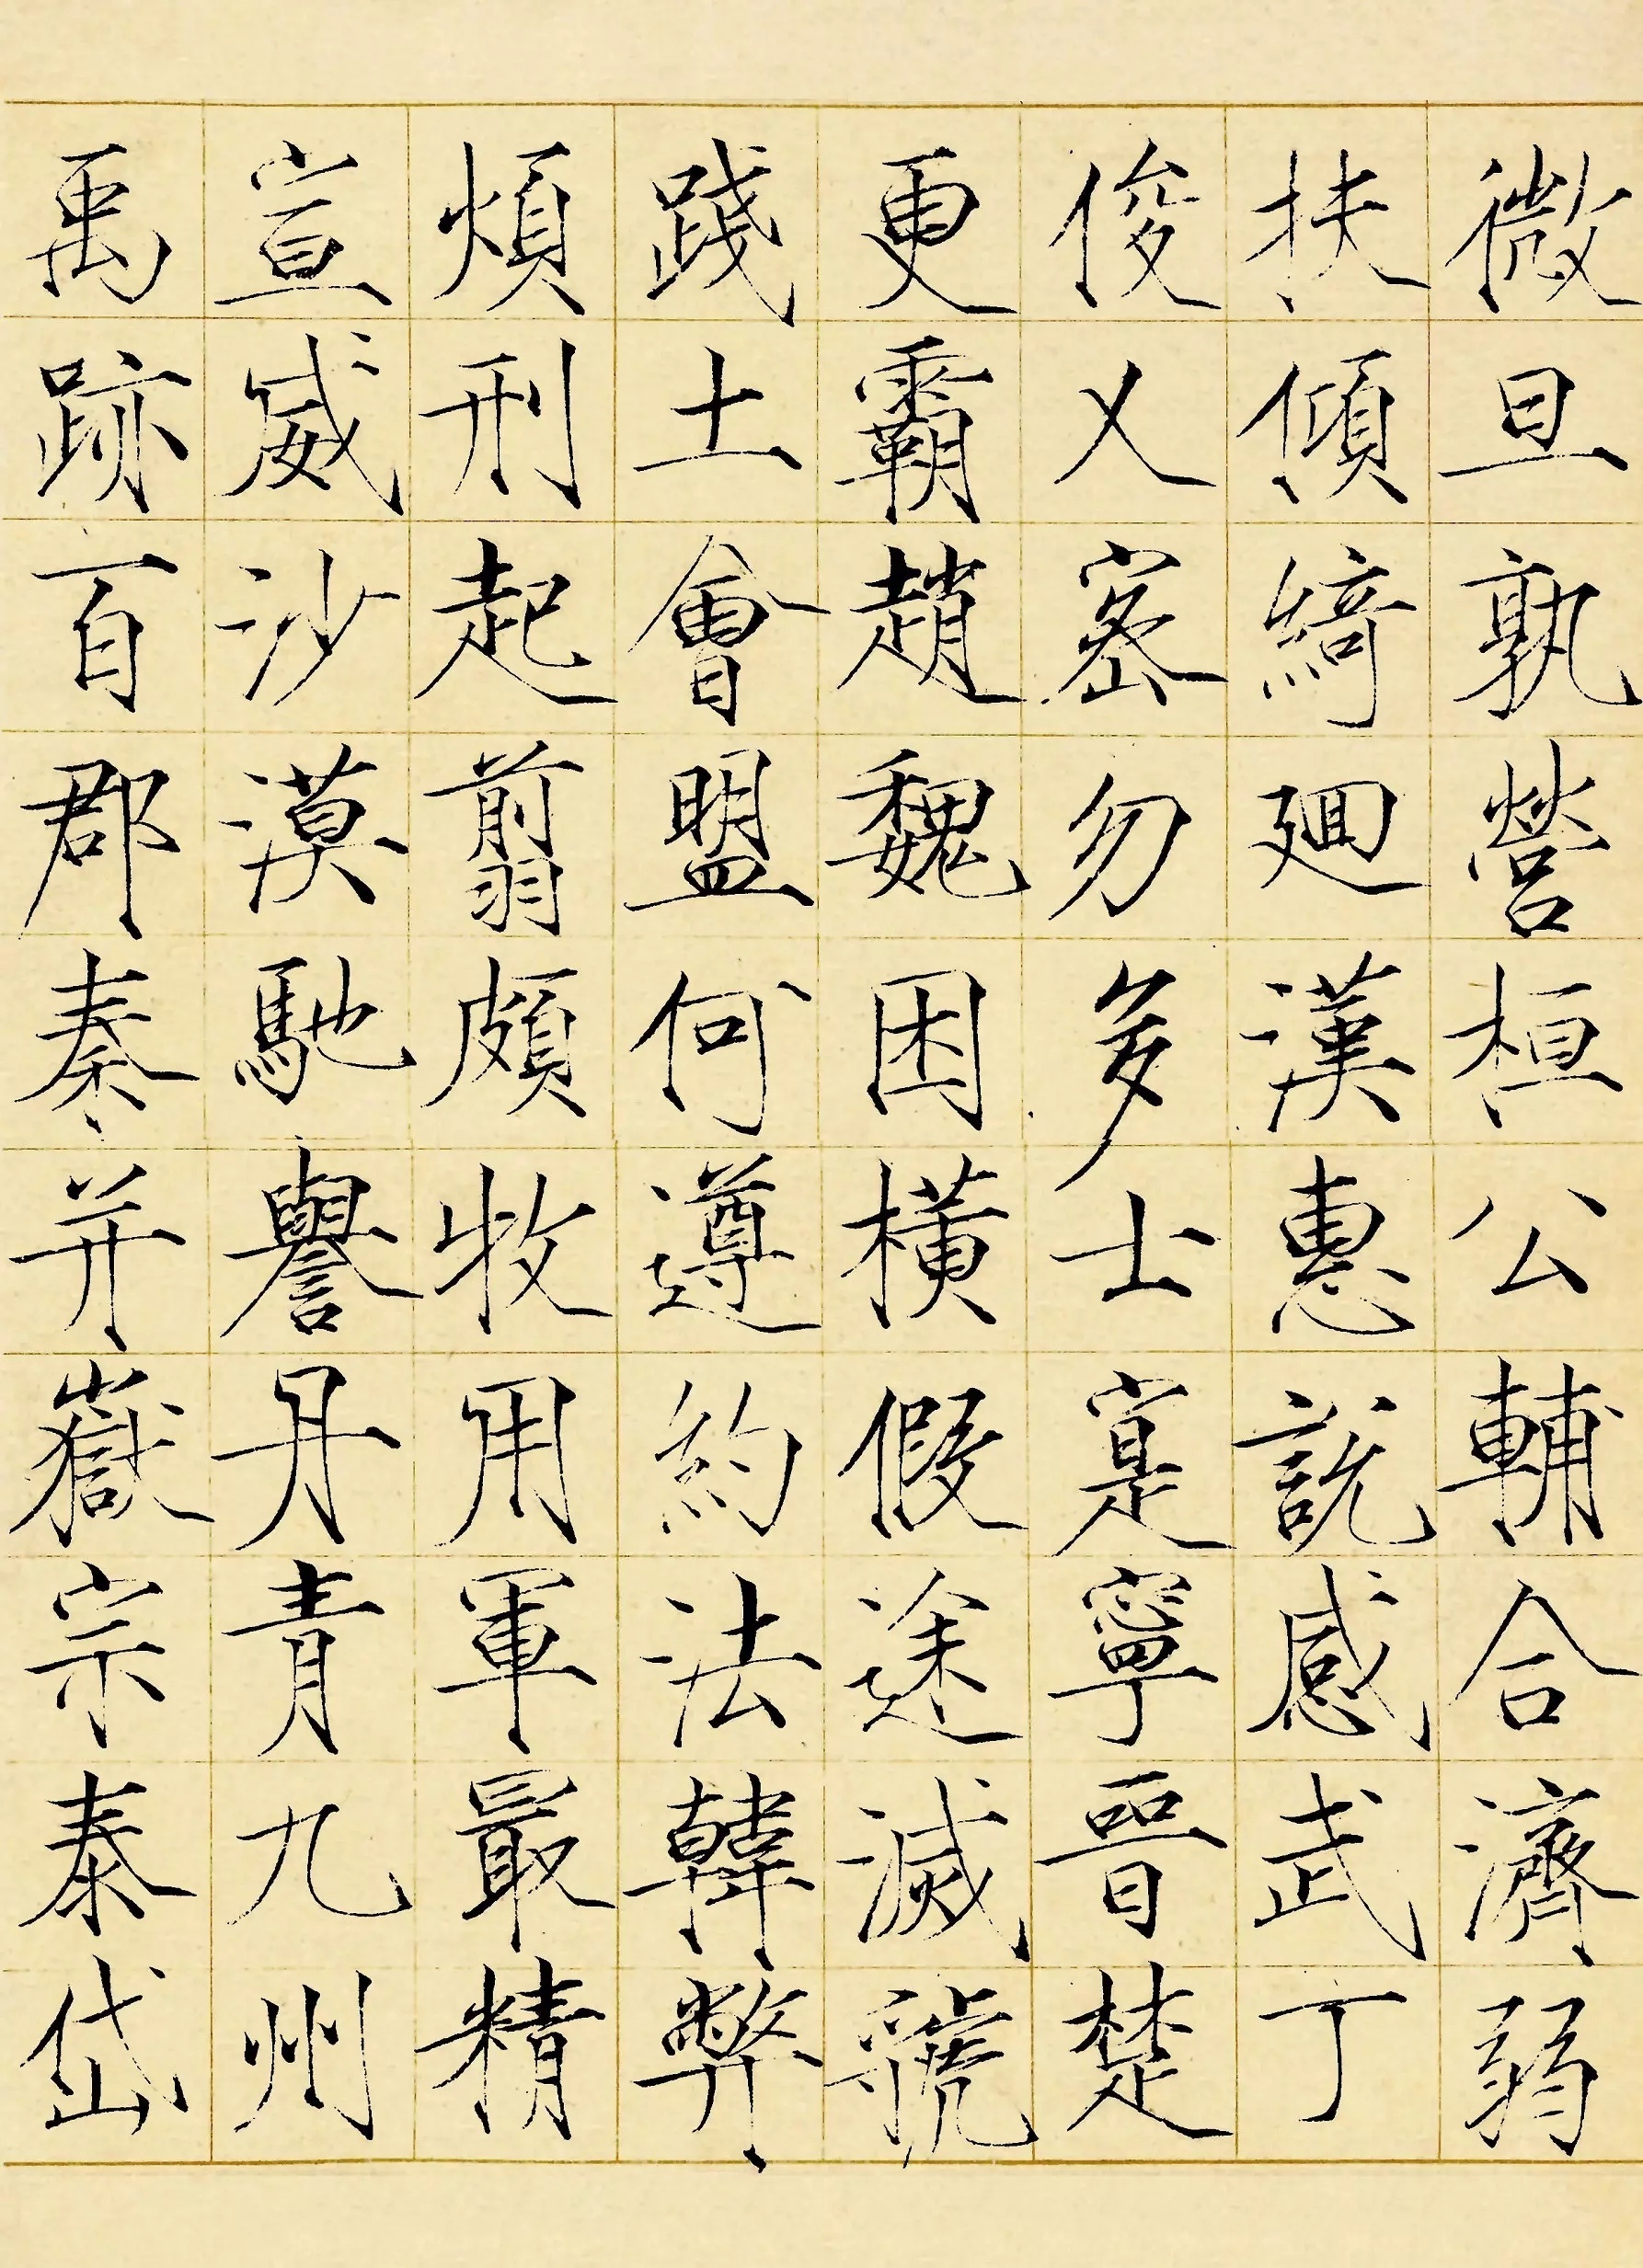 微旦孰營桓公輔合濟弱
扶傾綺廻漢惠説感武丁
俊乂密勿多士寔寧晉楚
更霸趙魏困橫假途滅虢
踐土會盟何遵約法韓弊
煩刑起翦頗牧用軍最精
宣威沙漠馳譽丹青九州
禹跡百郡秦并嶽宗泰岱